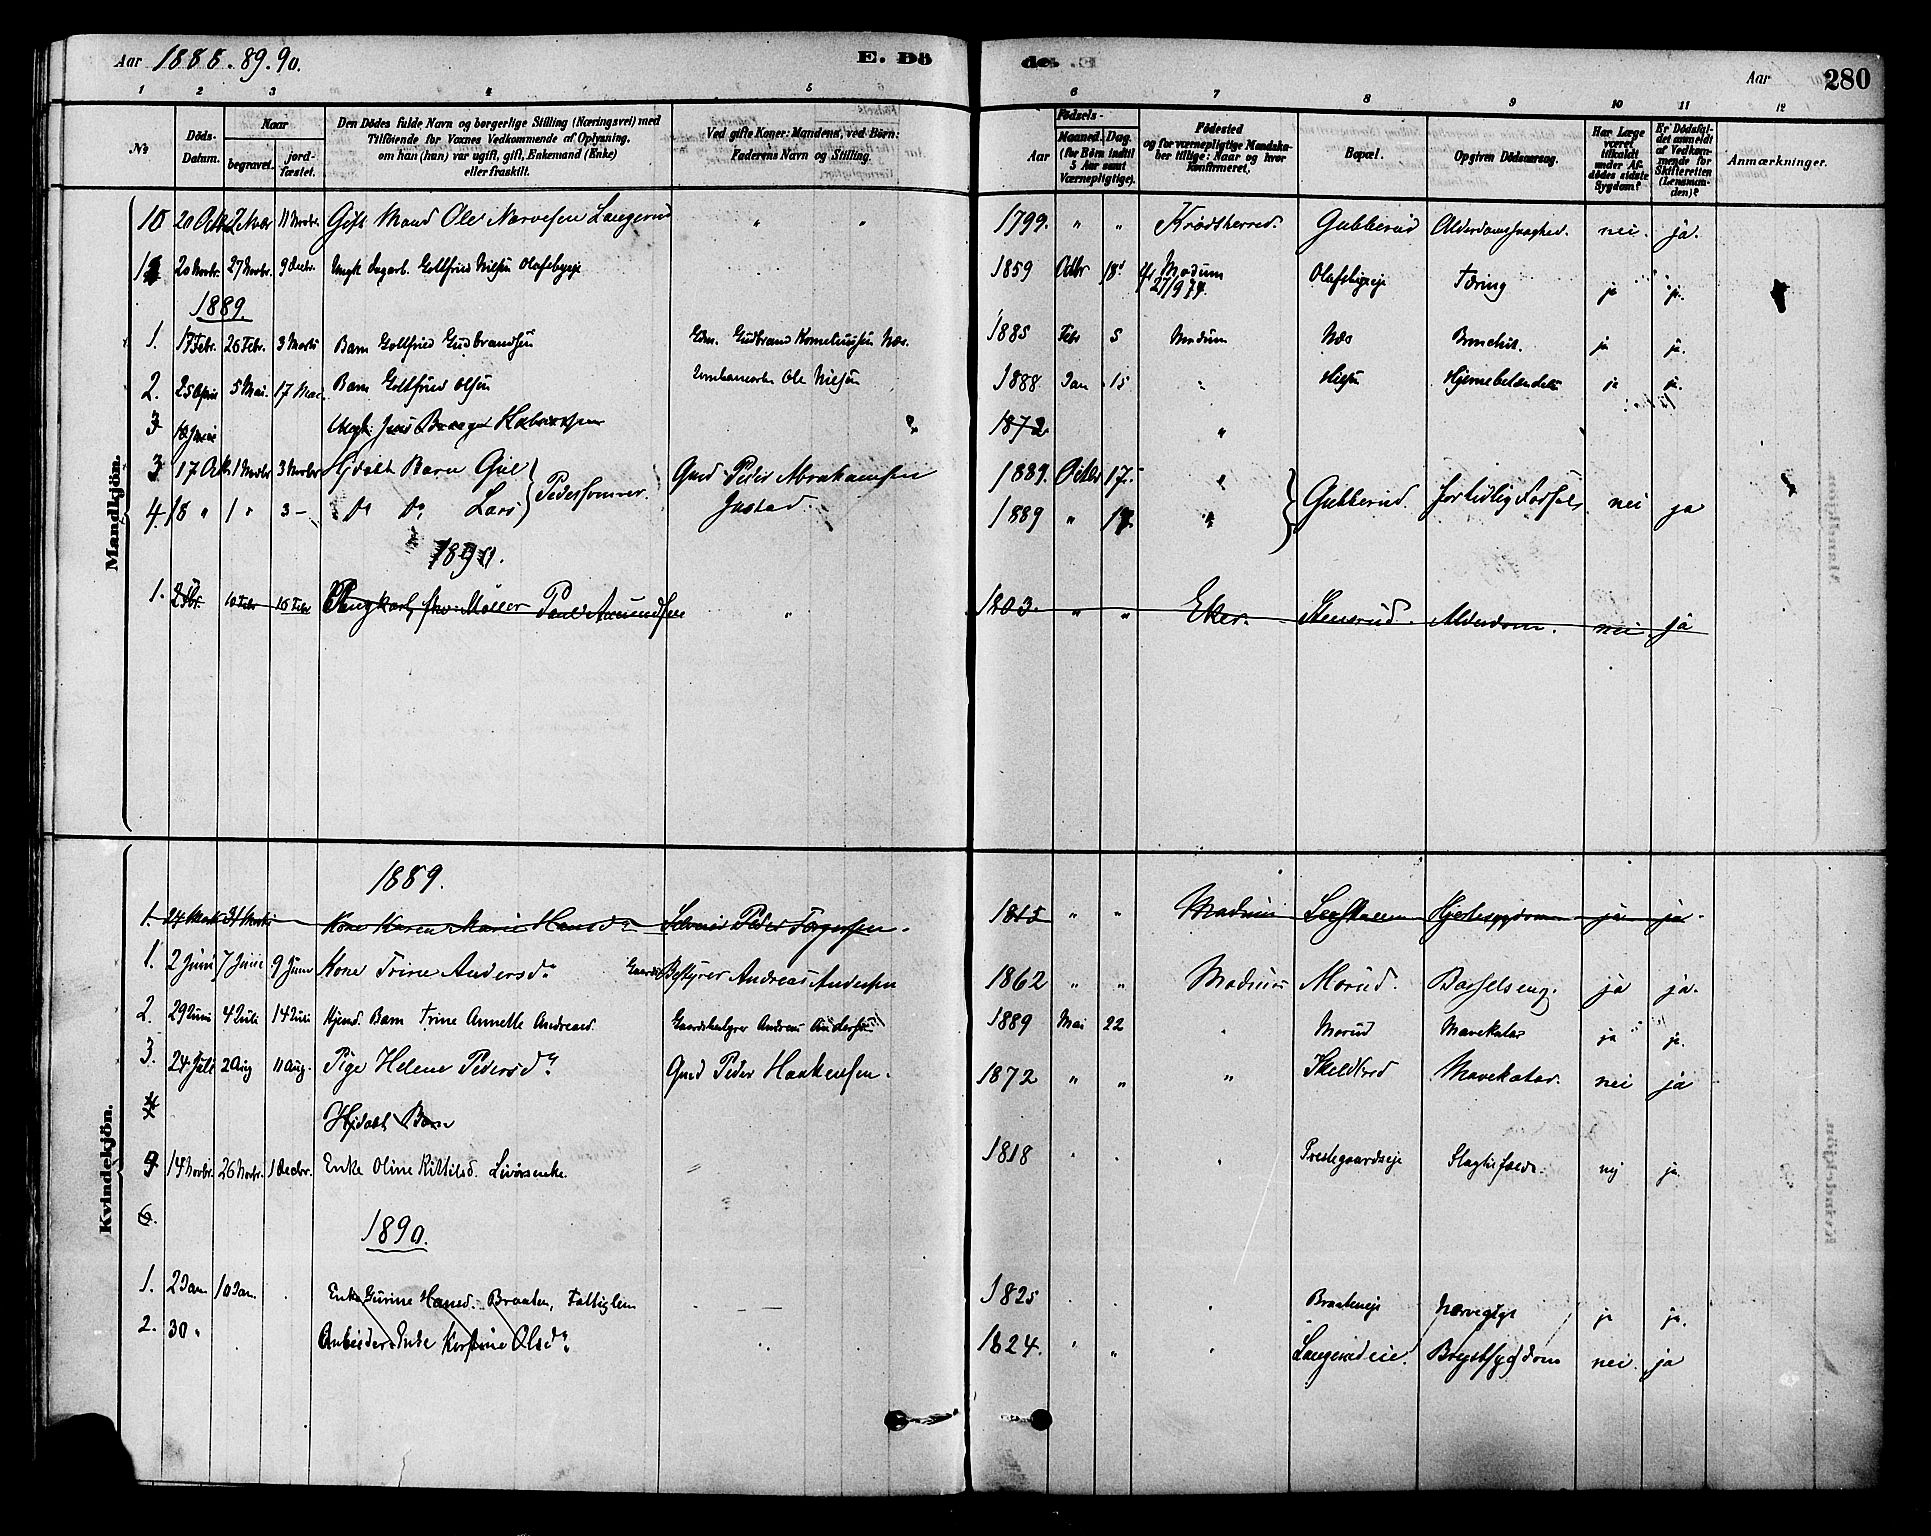 Aar 1888. 89. 90.
E. Dö
de. E.
Aar
280
1 2 3 4 5 6 7 8 9 10 11 12
No
Döds-Datum.
Naar
begravet.
jord-fæstet.
Den Dödes fulde Navn og borgerlige Stilling (Næringsvei) med
Tilföiende for Voxnes Vedkommende af Oplysning,
om han (hun) var ugift, gift, Enkemand (Enke)
eller fraskilt.
Ved gifte Koner: Mandens, ved Börn:
Faderens Navn og Stilling.
Födsels-
Aar
Maaned. Dag.
(for Börn indtil
5 Aar samt
Værnepligtige).
Födested
og for værnepligtige Mandska-
ber tillige: Naar og hvor
Konfirmeret,
Bopæl.
Opgiven Dödsaarsag.
Har Læge
været
tilkaldt
under Af-
dödes sidste
Sygdom?
Er Dödsfal-
det anmeldt
af Vedkom-
mende for
Skifteretten
(Lensman-
den)?
Anmærkninger.
Mandkjön.
10 20 Okt 2 Novbr 11 Novbr. Gift Mand Ole Narvesen Langerud " " 1799. " " Krødsherred. Gubberud Alderdomssvaghed. nei. ja.
20 Novbr. 27 Novbr. 9 Decbr. Ungk Dagarb. Gottfried Nilsen Olafsbyeje 1859 Octbr 18 Modum 27/9 74. Olafsbyeje Tæring ja ja.
1889.
1. 17 Febr. 26 Febr. 3 Marts Barn Gottfried Gudbrandsen Gdm. Gudbrand Korneliussen Næs. 1885 Febr 5 Modum Næs Bronchit. ja ja.
2. 25 April 5 Mai. 17 Mai. Barn Gottfried Olsen Ole Nilsen 1888 Jan 15 " Hjernebetændelse ja ja.
3 18 Juni Ungk. Jens Braager Halvorsen " 1872 "
3. 17 Okt. 1 Novbr 3 Novbr Hjdøbt Barn Gul Pedersønner. Gmd Peder Abrahamsen 1889. Octbr 17. " Gubberud. for tidlig Fødsel nei ja
4. 18 " 1 " 3 – do do Lars Justad. 1889 " 17. "
1890.
1. 2 Febr. 10 Febr 16 Febr Ungkarl, fhv. Møller Paul Amundsen " 1803. " " Eker. Stensrud. Alderdom. nei. ja
Kvindekjön.
1889.
1. 24 Marts 31 Marts Kone Karen Marie Hansd. Selveier Peder Torgersen. 1815 " " Modum Hjertesygdom ja ja.
1. 2 Juni 7 Juni 9 Juni Kone Trine Andersdr Gaardsbestyrer Andreas Andersen 1862 " " Modum Morud. Barselseng. ja ja.
2. 29 Juni 4 Juli 14 Juli Hjemd. Barn Trine Annette Andreasd. Gaardsbestyrer Andreas Andersen 1889 Mai 22 " Morud Mavekatar ja ja.
3. 24 Juli 2 Aug 11 Aug. Pige Helene Pedersdr Gmd Peder Haakensen. 1872 " " " Mavekatar. nei ja
4 Hjdøbt Barn
14 Novbr. 26 Novbr. 1 Decbr. Enke Oline Kittilsd. " 1818 " " " Prestegaardseje Slagtilfælde. nej ja.
6.
1890.
1. 2 Jan 10 Jan. Enke Gurine Hansd. Braaten, Fattiglem 1825 " " " Braateneje ja ja.
2. 30 " Arbeider Enke Kirstine Olsdr 1824. " " " Langerudeie. Brystsygdom nei. ja